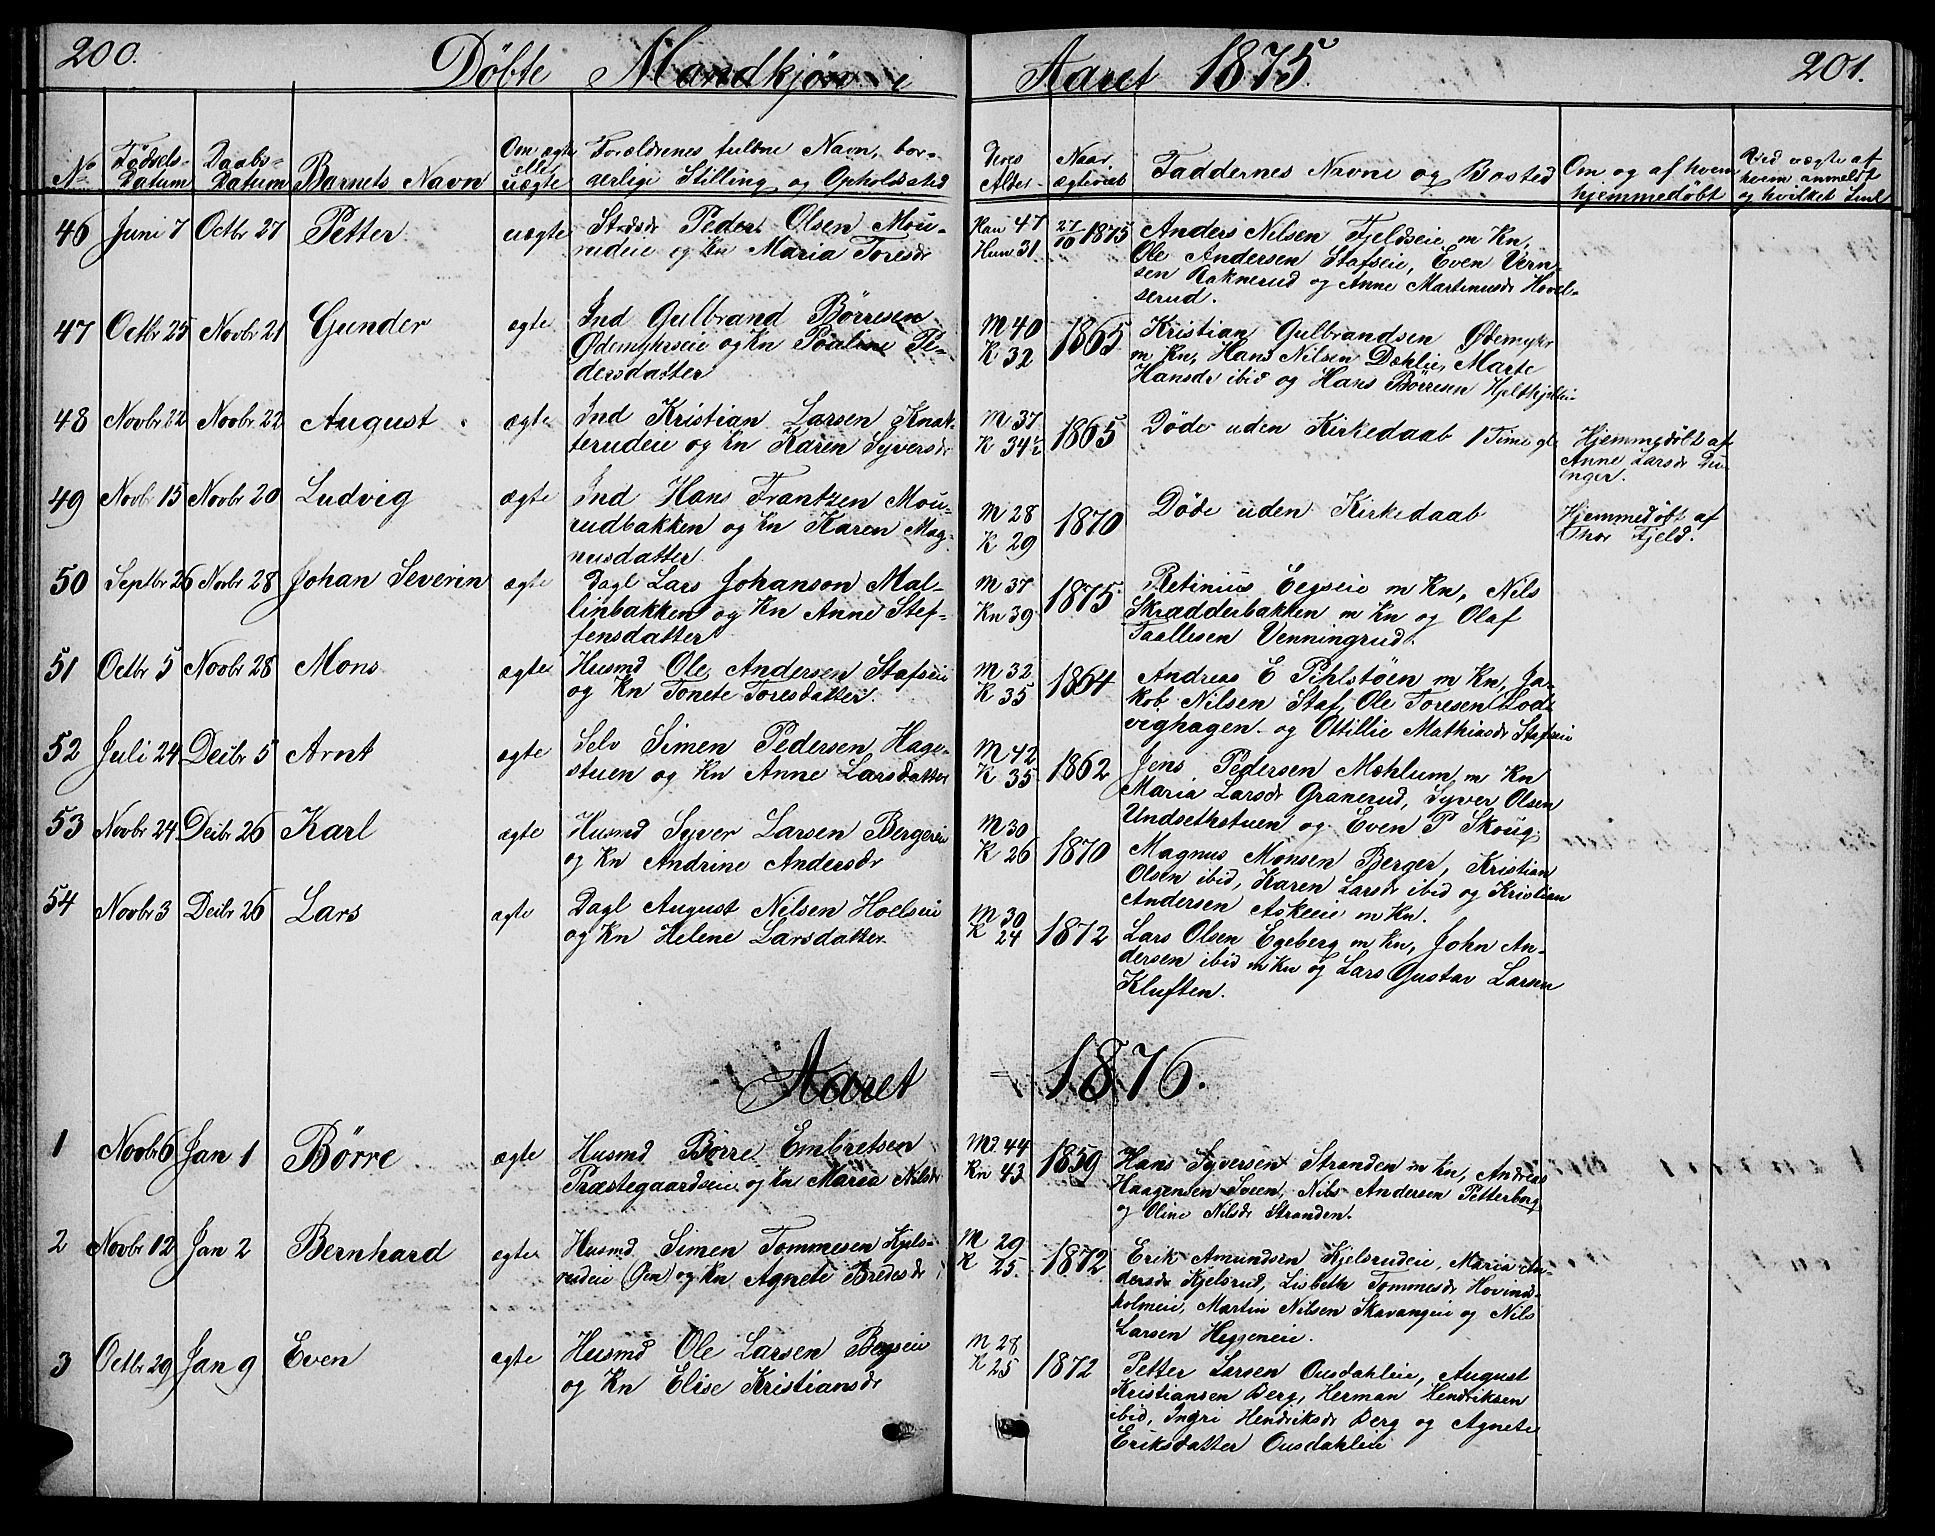 200.
Döbte Mandkjön i
Aaret 1875.
201.
No
Födsels-
Datum
Daabs-
Datum
Barnets Navn
Om ægte
elle
uægte
Forældrenes fuldne Navn, bor-
derlige Stilling og Opholdssted
Deres
Alder
Naar
ægteviet
Faddernes Navne og Bosted
Om og af hvem
hjemmedöbt
Ved uægte af
hvem anmeldt
og hvilket
46 Juni 7 Octbr 27 Petter uægte
Peder Olsen Mou-
rudeie og Kn Maria Toresdr
47 31
27/10 1875
Anders Nilsen Fjeldseie m Kn,
Ole Andersen Stafseie, Even Vern-
sen Raknerud og Anne Martinusdr Hovel-
serud.
47 Octbr 25 Novbr 21 Gunder ægte
Ind Gulbrand Börresen
Ödemykseie og Kn Pauline Pe-
dersdatter
M 40
K 32
1865
Kristian Gulbrandsen Ödemykr
m Kn, Hans Nilsen Dahlie, Marte
Hansdr ibid og Hans Börresen
48 Novbr 22 Novbr 22 August ægte
Ind Kristian Larsen Knat-
terudeie og Kn Karen Syversdr
M 37
K 34½
1865
Döde uden Kirkedaab 1 Time gl
Hjemmedöbt af
Anne Larsdr
49 Novbr 15 Novbr 20 Ludvig ægte
Ind Hans Frantzen Mou-
rudbakken og Kn Karen Mag-
nusdatter
M 28
K 29
1870
Döde uden Kirkedaab
Hjemmedöbt af
Thor Fjeld.
50 Septbr 26 Novbr 28 Johan Severin ægte
Dagl Lars Johanson Mal-
linbakken og Kn Anne Stef-
fensdatter
M 37
Kn 39
1875
Petinius Eegseie m Kn, Nils
Skrædderbakken m Kn og Olaf
Taallesen Venningrud.
51 Octbr 5 Novbr 28 Mons ægte
Husmd Ole Andersen Stafseie
og Kn Tonete Toresdatter.
M 32
K 35
1864
Andreas E Pihlstöen m Kn, Ja-
kob Nilsen Staf, Ole Toresen Lod-
veghagen og Ottillie Mathiasdr Stafseie
52 Juli 24 Decbr 5 Arnt ægte
Selv Simen Pedersen Hage-
stuen og Kn Anne Larsdatter
M 42
K 35
1862
Jens Pedersen Mæhlum m Kn
Maria Larsdr Granerud, Syver Olsen
Undsethstuen og Even P Skoug.
53 Novbr 24 Decbr 26 Karl ægte
Husmd Syver Larsen Bergerie
og Kn Andrine Andersdr
M 30
K 26
1870
Magnus Monsen Berger, Kristian
Olsen ibid, Karen Larsdr ibid og Kristian
Andersen Askeeie m Kn.
54 Novbr 3 Decbr 26 Lars ægte
Dagl August Nilsen Hoelseie
og Kn Helene Larsdatter
M 30
K 24
1872
Lars Olsen Egeberg m Kn, John An-
dersen ibid m Kn og Lars Gustav Larsen
Kluften.
Aaret 1876.
1 Novbr 6 Jan 1 Börre ægte
Husmd Börre Embretsen
Præstegaardseie og Kn Maria Nilsdr
Md. 44
Kn 43
1859
Hans Syversen Stranden m Kn, Andreas
Haagensen Sveen, Nils Andersen Petterborg
og Oline Nilsdr Stranden.
2 Novbr 12 Jan 2 Bernhard ægte
Husmd Simen Tommesen Kjels-
rudeie og Kn Agnete Bredesdr
M 29
K 25
1872
Erik Amundsen Kjelsrudeie, Maria An-
dersdr Kjelsrud, Lisbeth Tommesdr Hovinds-
holmeie, Martin Nilsen Skavangeie og Nils
Larsen Heggeneie.
3 Octbr 29 Jan 9 Even ægte
Husmd Ole Larsen Bergseie
og Kn Elise Kristiansdr
M 28
K 25
1872
Petter Larsen Ousdahleie, August
Kristiansen Berg, Herman Hendriksen
ibid, Ingri Hendriksdr Berg og Agnete
Eriksdatter Ousdahleie